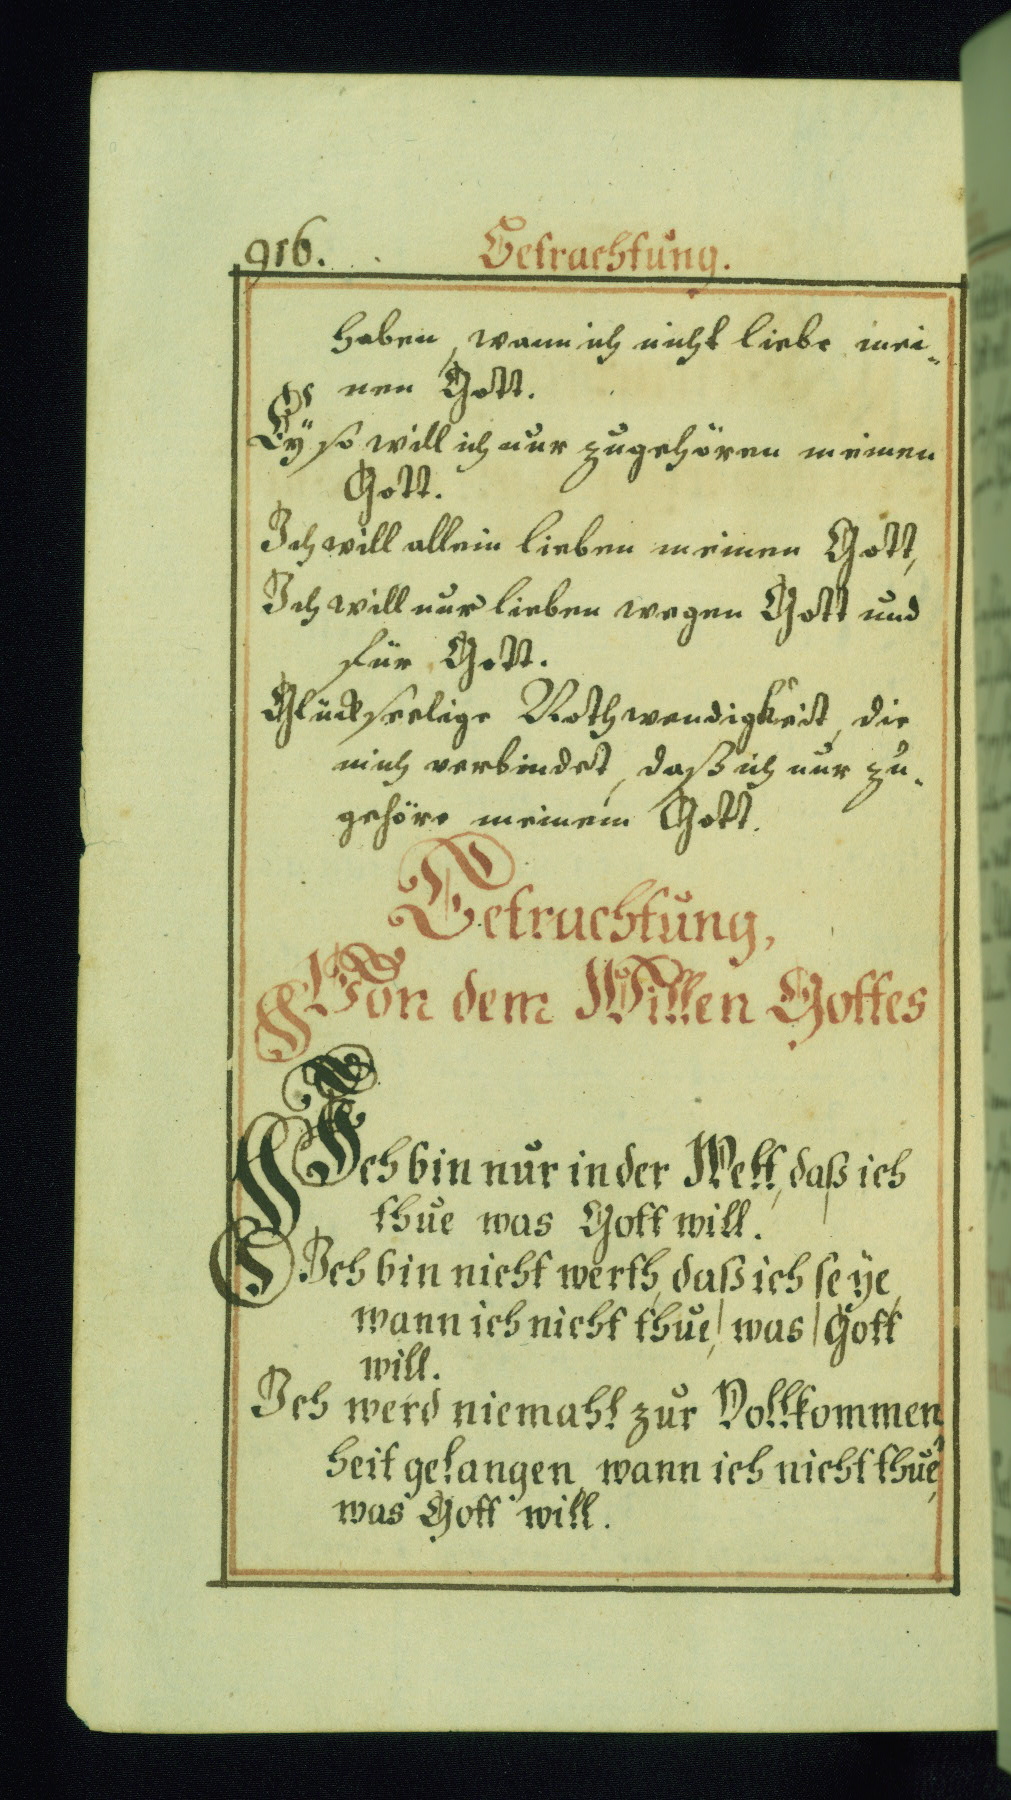 916. Betrachtung.
haben, wann ich nicht liebe mei-
nen Gott.
Ey so will ich nur zugehören meinen
Gott.
Ich will allein lieben meinen Gott,
Ich will nur lieben wegen Gott und
für Gott.
Glückseelige Nothwendigkeit, die
mich verbindet, daß ich nur zu-
gehöre meinem Gott.
Betrachtung,
Von dem Willen Gottes
Ich bin nur in der Welt, daß ich
thue was Gott will.
Ich bin nicht werth, daß ich seÿe,
wann ich nicht thue, was Gott
will.
Ich werd niemahl zur Vollkommen
heit gelangen, wann ich nicht thue,
was Gott will.